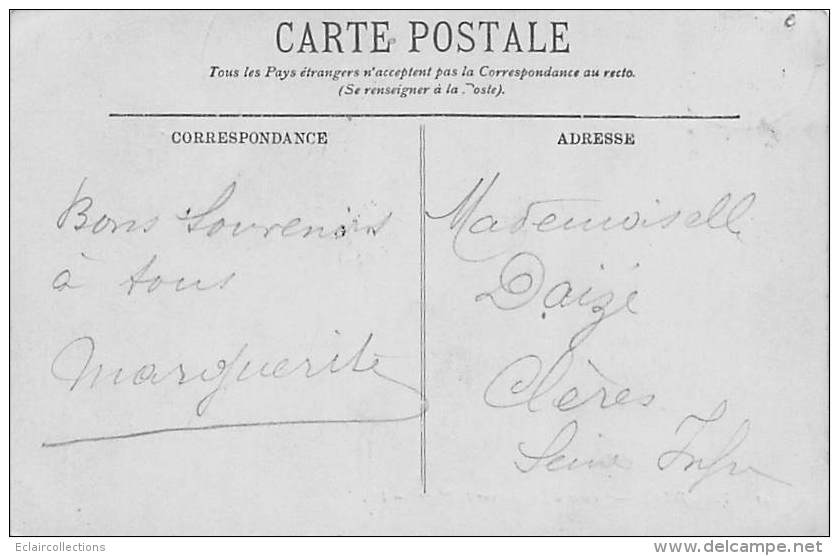 CARTE POSTALE
Tous les Pays étrangers n'acceptent pas la Correspondance au recto.
(Se renseigner à la Poste).
CORRESPONDANCE
ADRESSE
Bons Souvenirs
à tous
Marguerite
Mademoiselle
Daizé
Clères
Seine Infre
Eclaircollections
www.delcampe.net